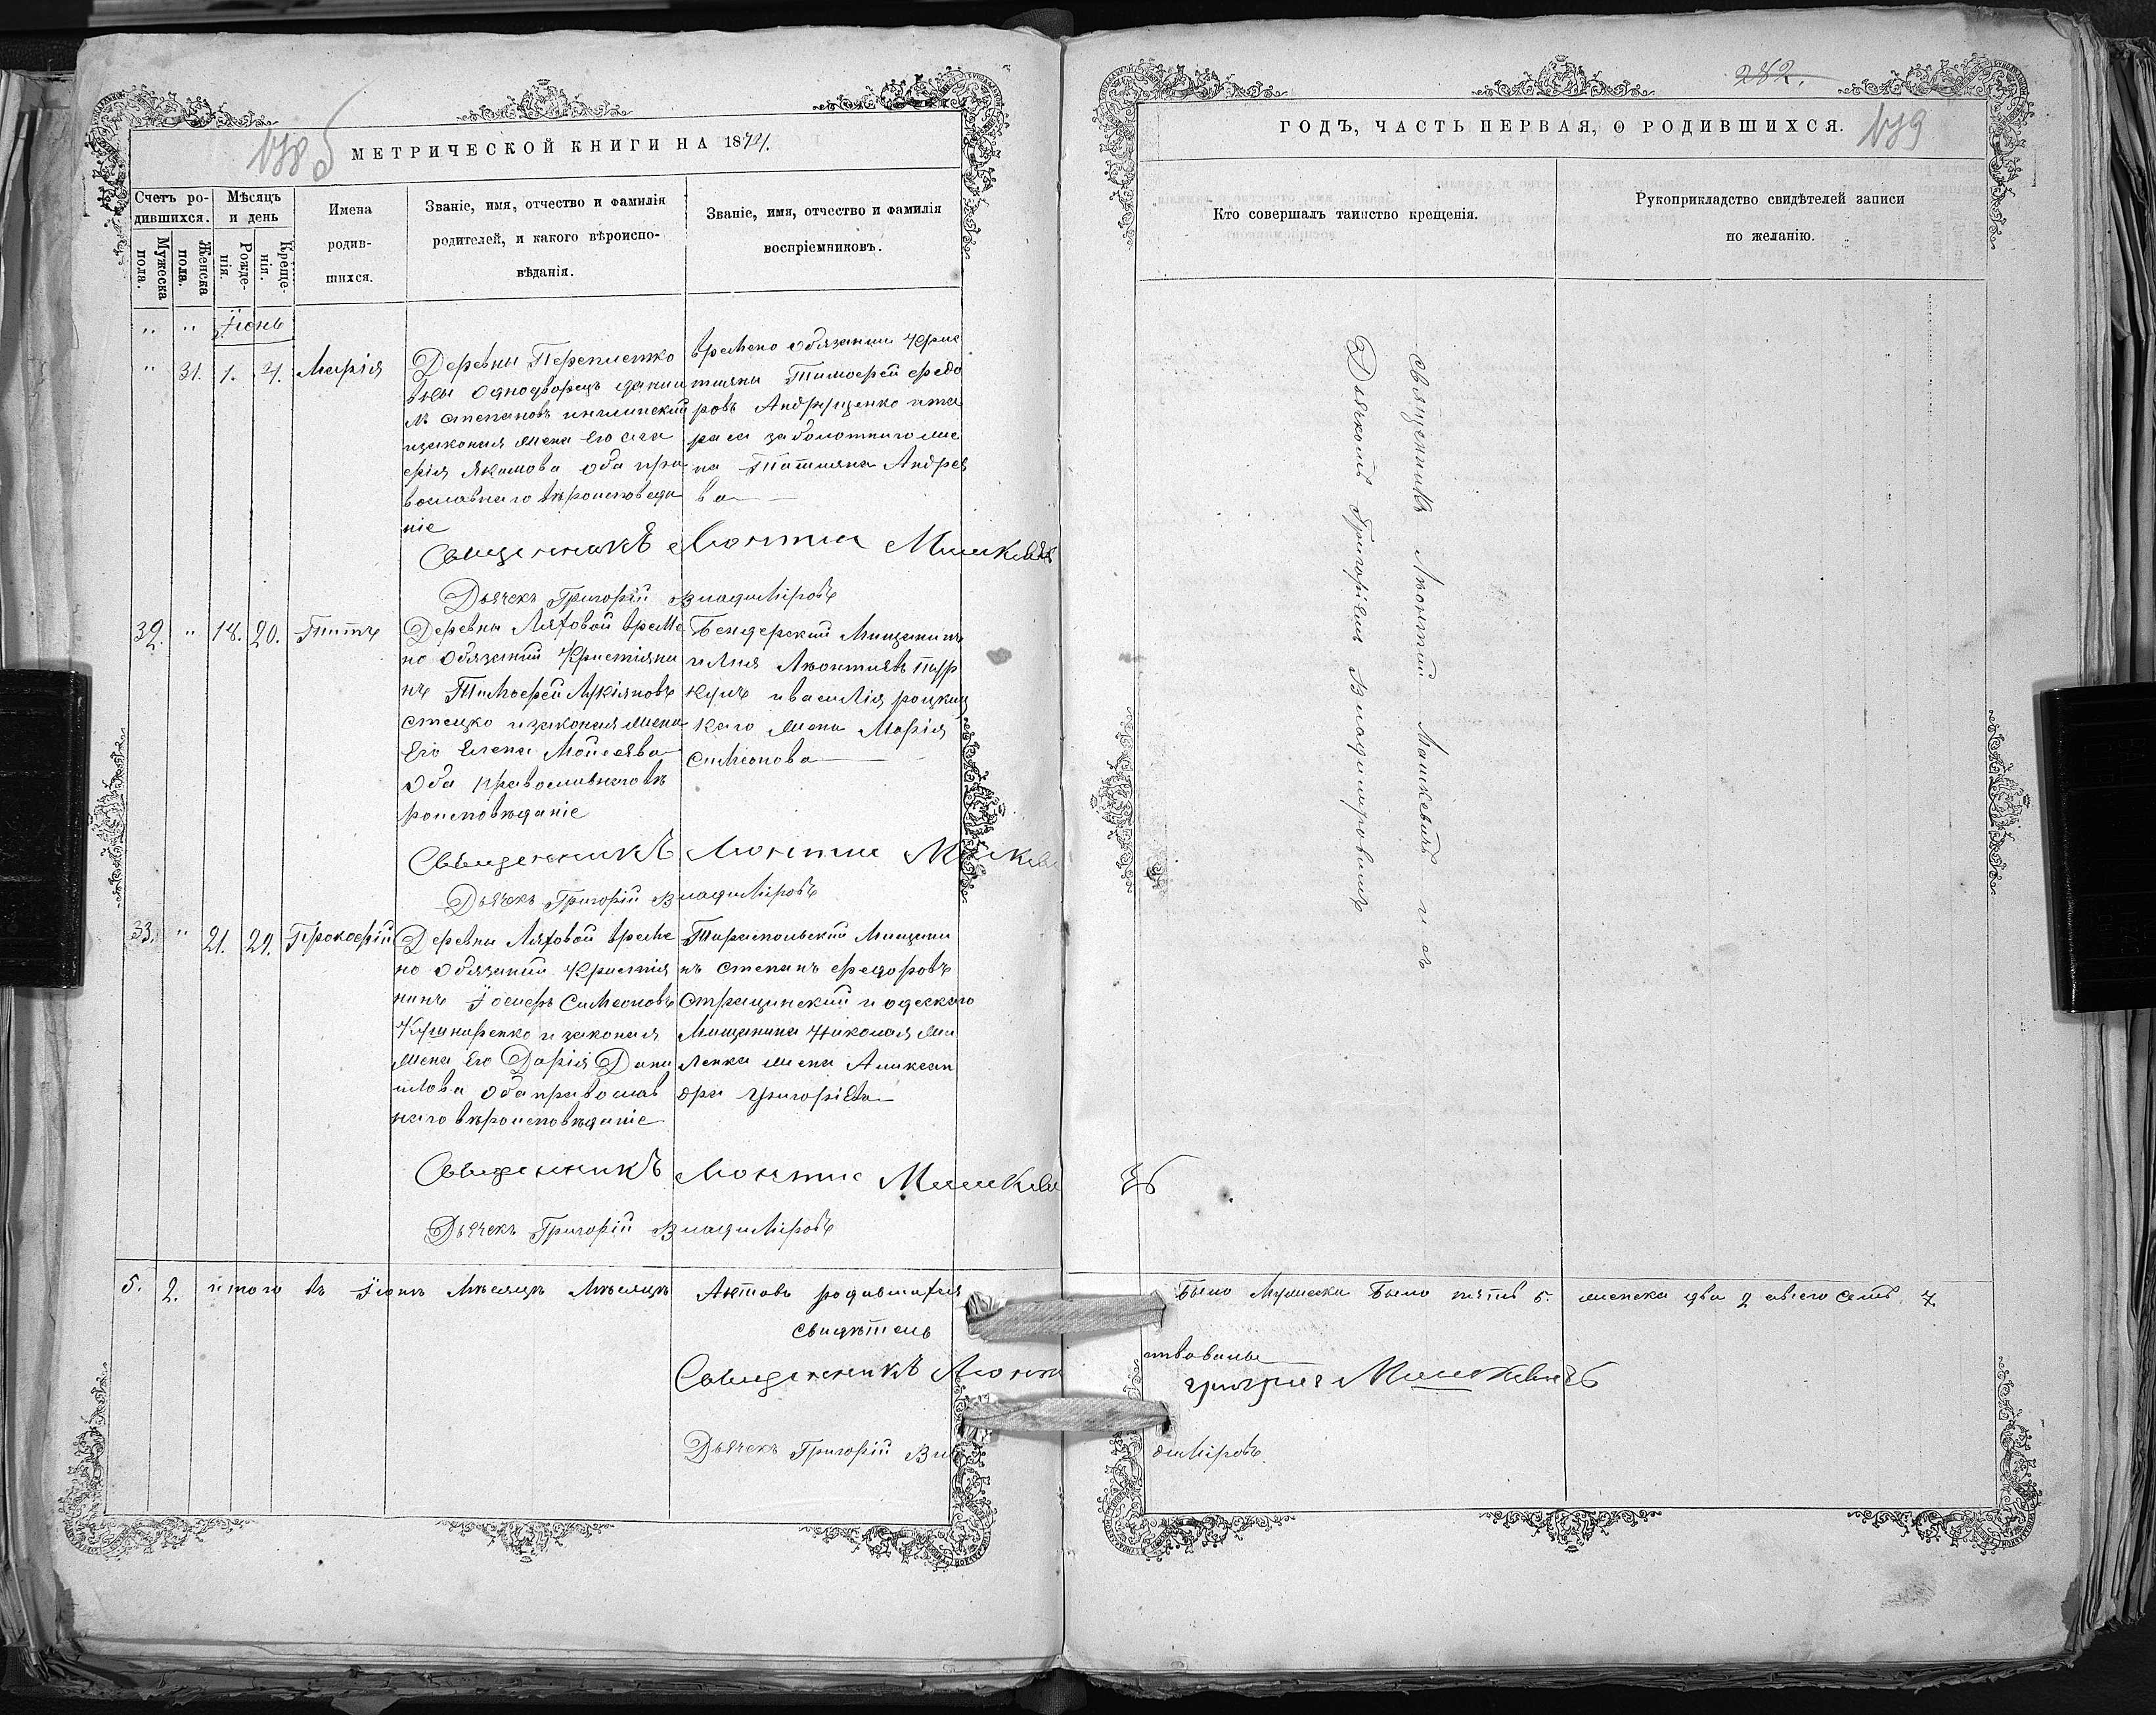 МЕТРИЧЕСКОЙ КНИГИ НА 1871.
Счетъ ро-
дившихся.
Мужеска
пола.
Женска
пола.
Мѣсяцъ
и день
Рожде-
нія.
Креще-
нія.
Имена
родив-
шихся.
Званіе, имя, отчество и фамилія
родителей, и какого вѣроиспо-
вѣданія.
Званіе, имя, отчество и фамилія
воспріемниковъ.
Іюнь
31. 1. 4. Марія
Деревни
вы Однодворецъ Дании
лъ Степановъ
и законая жена Его
Якимова Оба пра
вославнаго вѣроисповеда
ніе
времено Обязании Крис
тияни Тимофей Федо
ровъ Андрущенко и та
раса заболотнаго же
на Татияна Андрее
ва
Священникъ Леонтий Машкевичъ
Дьячекъ Григорій Владиміровъ
32. 18. 20. Титъ
Деревни Ляховой време
но Обязаний Кристияни
нъ Тимофей Лукіяновъ
Стецко и законая жена
Его Елена Моисеева
Оба православнаго вѣ
роисповѣданіе
Бендерский Мищанинъ
Илия Леонтиевъ
и василія
каго жена Марія
Симеонова
Священникъ Леонтий
Дьячекъ Григорій Владиміровъ
33. 21. 29. Прокофій
Деревни Ляховой време
но Обязаний Кристия
нинъ Іосифъ Симеоновъ
Кушнаренко и законая
жена Его Дарія Дани
илова Оба православ
наго вѣроисповѣданіе
Тираспольский Мищани
нъ Степанъ Федоровъ
и одесскаго
Мищанина Николая Ми
ленка жена Алексан
дра Григоріева
Священникъ Леонтий Машкевичъ
Дьячекъ Григорій Владиміровъ
5. 2. итого въ Іюнѣ Мѣсяцѣ Мѣсяцѣ Актовъ родившихся
свидѣтель
Священникъ Леон
Дьячекъ Григорій Вла
282.
179
ГОДЪ, ЧАСТЬ ПЕРВАЯ, О РОДИВШИХСЯ.
Кто совершалъ таинство крещенія.
Рукоприкладство свидѣтелей записи
по желанію.
Священникъ Леонтий Машкевичъ и съ
Дьячкомъ Григоріемъ Владимировимъ
Было Мужеска Было пять 5. женска два 2 авсего семь 7.
ствовалъ
Машкевичъ
диміровъ.